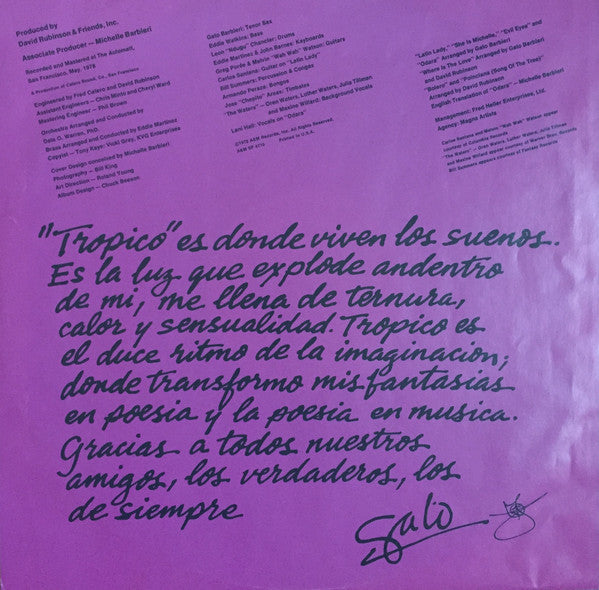 Produced by
David Rubinson & Friends, Inc.
Associate Producer — Michelle Barbieri
Recorded and Mastered at The Automatt,
San Francisco, May, 1978
Engineered by Fred Catero and David Rubinson
Assistant Engineers — Chris Minto and Cheryl Ward
Mastering Engineer — Phil Brown
Orchestra Arranged and Conducted by
Dale O. Warren, PhD.
Brass Arranged and Conducted by Eddie Martinez
Copyist — Tony Kaye; Vicki Gray, KVG Enterprises
Cover Design conceived by Michelle Barbieri
Photography — Bill King
Art Direction — Roland Young
Album Design — Chuck Beeson
Gato Barbieri: Tenor Sax
Eddie Watkins: Bass
Leon "Ndugu" Chancler: Drums
Eddie Martinez & John Barnes: Keyboards
Greg Poree & Melvin "Wah Wah" Watson: Guitars
Carlos Santana: Guitar on "Latin Lady"
Bill Summers: Percussion & Congas
Armando Peraza: Bongos
Jose "Chepito" Areas: Timbales
"The Waters" — Oren Waters, Luther Waters, Julia Tillman
and Maxine Willard: Background Vocals
Lani Hall: Vocals on "Odara"
©1978 A&M Records, Inc. All Rights Reserved.
A&M SP 4710
Printed in U.S.A.
"Latin Lady," "She is Michelle," "Evil Eyes" and
"Odara" Arranged by Gato Barbieri
"Where Is The Love" Arranged by Gato Barbieri
and David Rubinson
"Bolero" and "Poinciana (Song Of The Tree)"
Arranged by David Rubinson
English Translation of "Odara" — Michelle Barbieri
Management: Fred Heller Enterprises, Ltd.
Agency: Magna Artists
Carlos Santana and Melvin "Wah Wah" Watson appear
courtesy of Columbia Records
"The Waters" — Oren Waters, Luther Waters, Julia Tillman
and Maxine Willard appear courtesy of Warner Bros. Records
Bill Summers appears courtesy of Fantasy Records
"Tropico" es donde viven los suenos.
Es la luz que explode andentro
de mi, me llena de ternura,
calor y sensualidad. Tropico es
el duce ritmo de la imaginacion;
donde transformo mis fantasias
en poesia y la poesia en musica.
Gracias a todos nuestros
amigos, los verdaderos, los
de siempre
Gato